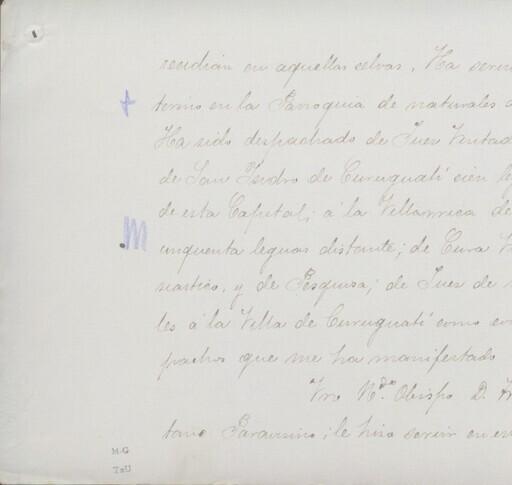 residian en aquellas selvas. Ha servi
termo en la Parroquia de naturales d
Ha sido despachado de Juez Visitad
de San Isidro de Curuguatí cien le
de esta Capital; á la Villarrica de
cinquenta leguas distante; de Cura V
siastico, y de Pesquisa; de Juez de
les á la Villa de Curuguatí como co
pachos que me ha manifestado
Vro Rdo Obispo D.
tano Paravisino; le hizo servir en es
M-G
TxU